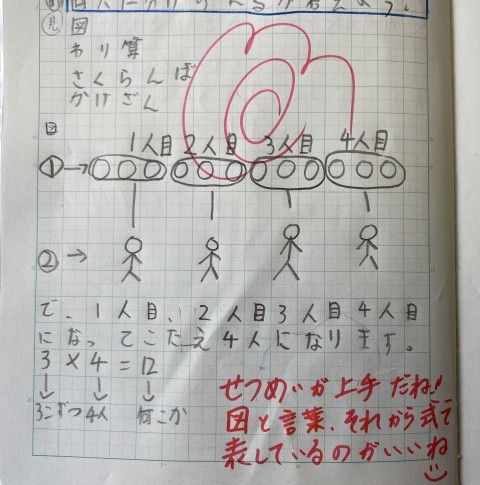 図
わり算
さくらんぼ
かけざん
図
1人目 2人目 3人目 4人目
①→
②→
で、1人目、2人目3人目4人目
になってこたえ4人になります。
3×4=12
↓ ↓ ↓
3こずつ 4人 何こか
せつめいが上手だね!
図と言葉、それから式で
表しているのがいいね